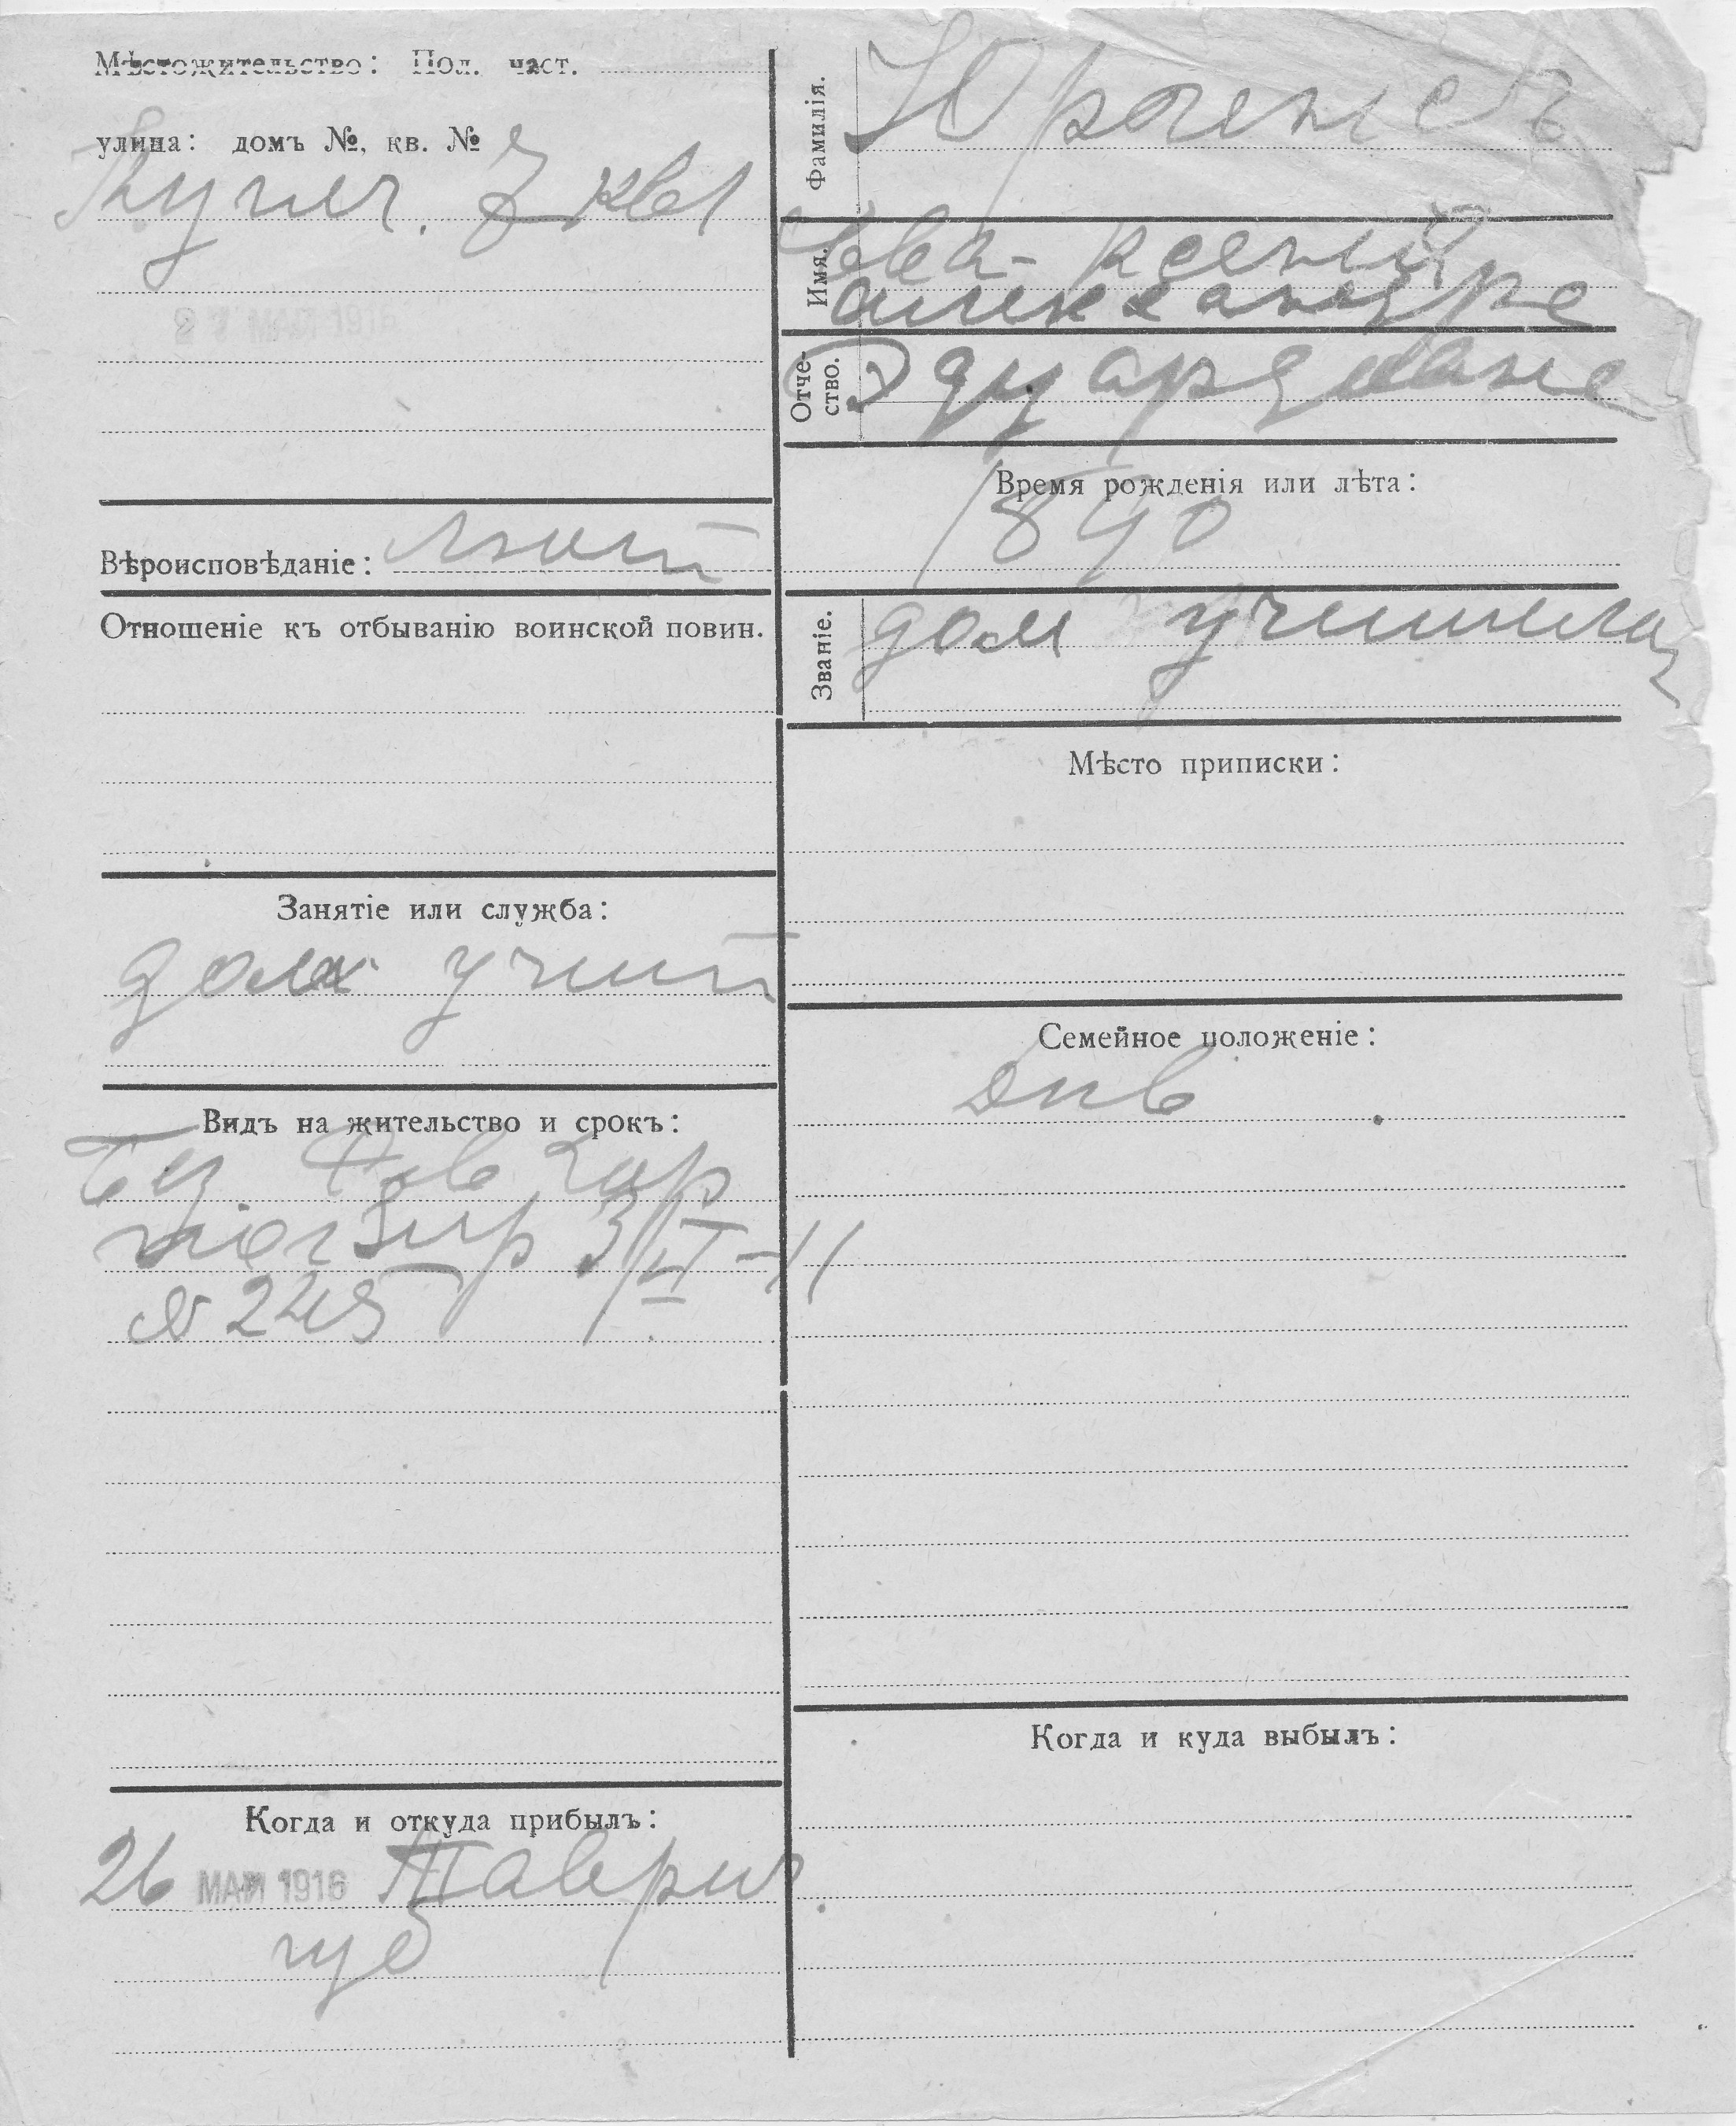 Мѣстожительство: Пол. част.
улица: домъ №, кв. №
Купеч. 7 кв 1
27 МАЯ 1916
Вѣроисповѣданіе: лют
Отношеніе къ отбыванію воинской повин.
Занятіе или служба:
дом учит
Видъ на жительство и срокъ:
№ 2245
Когда и откуда прибылъ:
26 МАЯ 1916 Таврич
губ
Фамилія.
Имя. Ева-Ксения
Александра
Отче-
ство. Эдуардовна
Время рожденія или лѣта:
1890
Званіе. дом учительн
Мѣсто приписки:
Семейное положеніе:
дѣв
Когда и куда выбылъ: